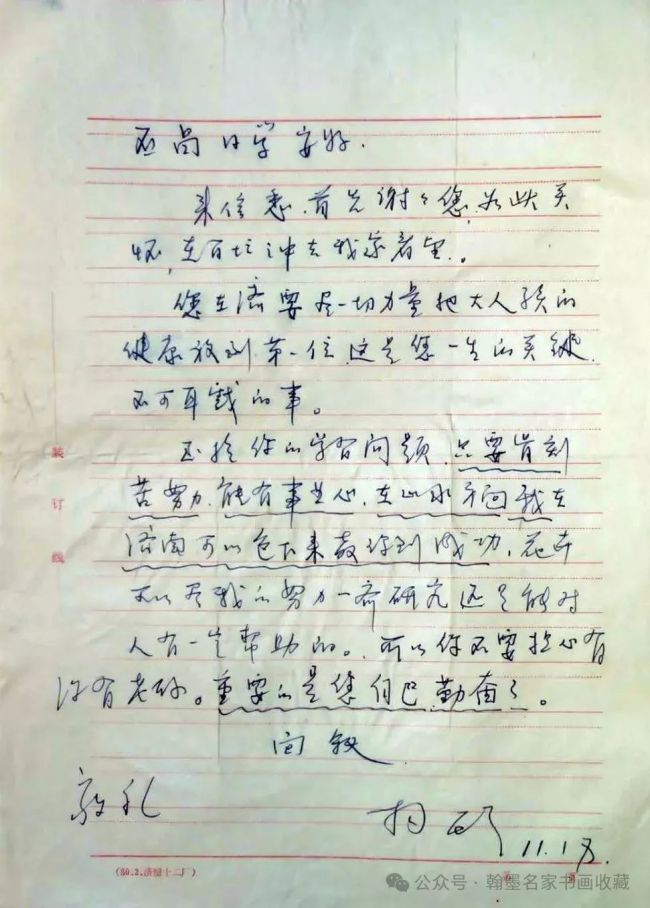 同学安好.
来信悉,首先谢谢您如此关
怀,在百忙之中去我家看望。
您在济要尽一切力量把大人孩的
健康放到第一位,这是您一生的关键
不可耳戏的事。
至于你的学习问题,只要肯刻
苦努力,能有事业心,在山水方面我在
济南可以包下来教你到成功,花卉
可以尽我的努力一齐研究还是能对
人有一定帮助的。所以你不要担心有
没有老师。重要的是您自己勤奋了。
面叙
敬礼
11.18.
装
订
线
(80.2.济塑十二厂)
公众号·翰墨名家书画收藏